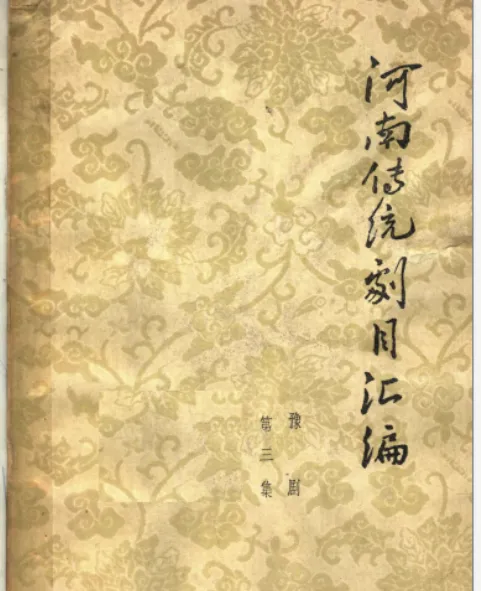 河南传统剧目汇编
豫剧
第三集